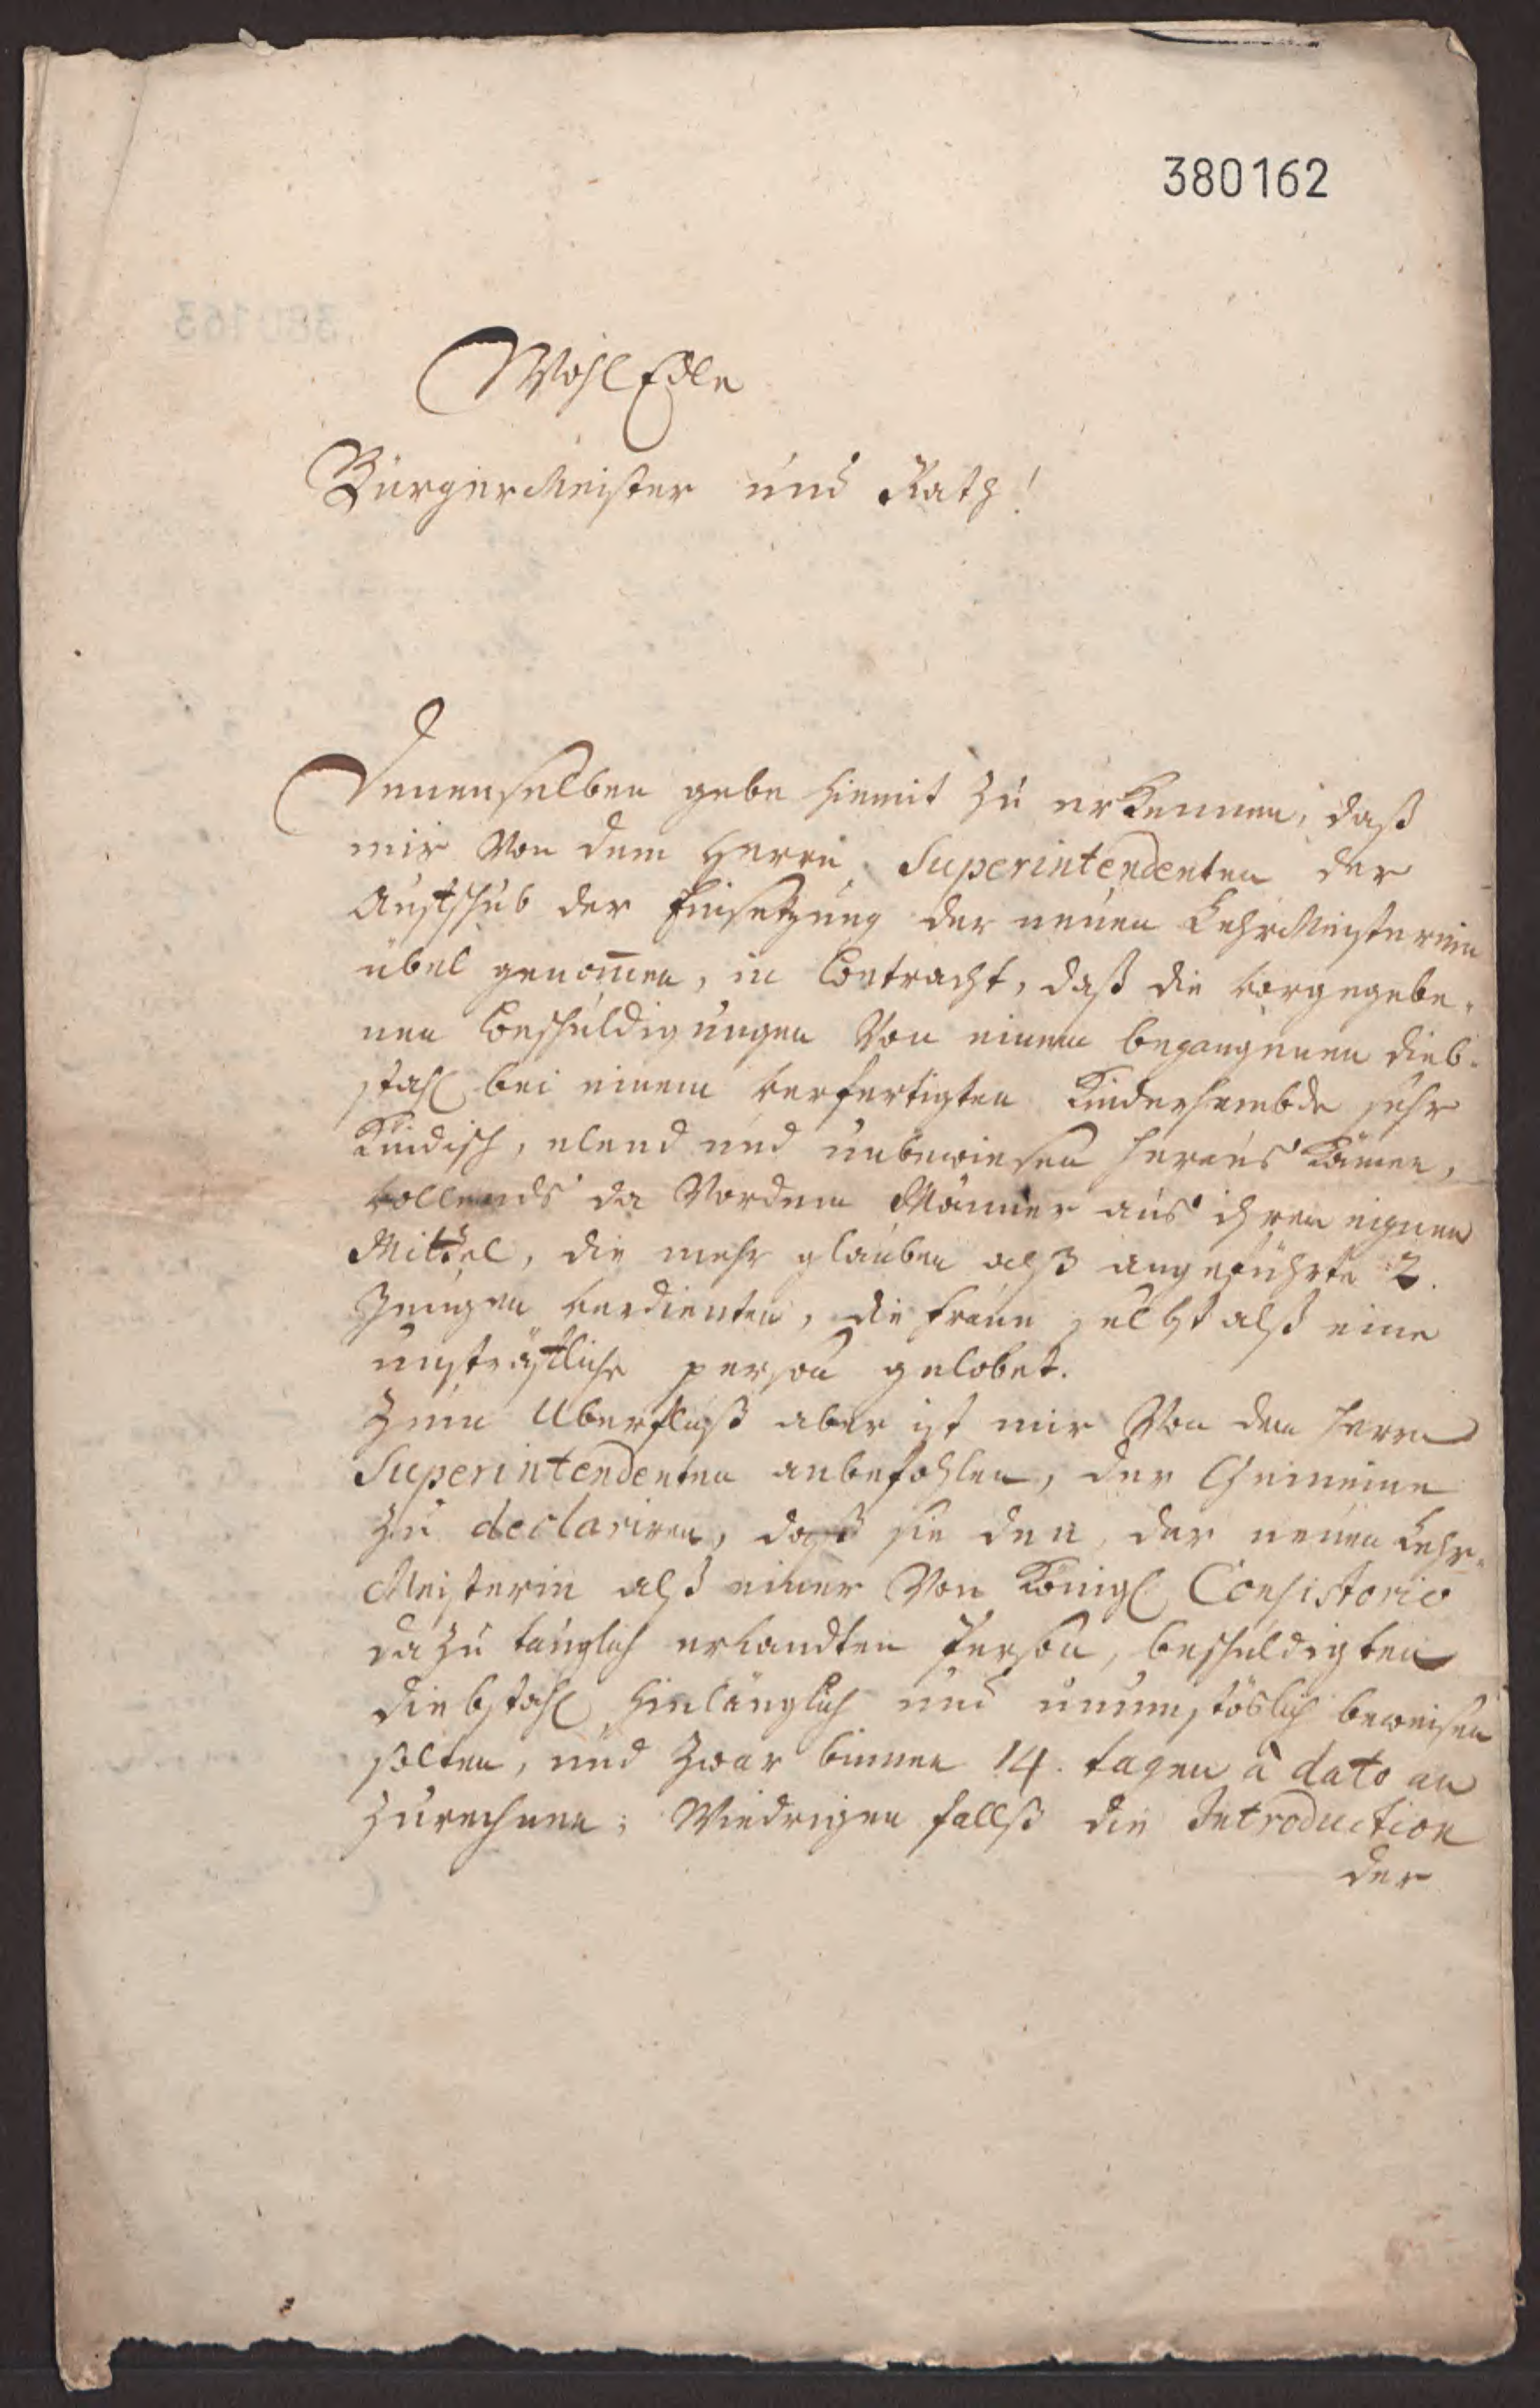 380162
WohlEdle
BürgerMeister und Rath!
Denenselben gebe hiemit zu erkennen, daß
mir Von dem Herrn Superintendenten der
Auffschub der Einsetzung der neuen LehrMeisterin
übel genom̄en, in Betracht, daß die vorgegebe-
nen Beschuldigungen Von einem begangenen Dieb-
stahl bei einem verfertigten Kinderhembde sehr
Kindisch, elend und unbewiesen heraus kämen,
vollends da Vordem Männer aus ihren eignen
Mittel, die mehr glauben alß angeführte 2.
Zeugen verdienten, die Frau selbst alß eine
unsträffliche person gelobet.
Zum Uberfluß aber ist mir Von dem Herrn
Superintendenten anbefohlen, der Gemeine
zu declariren, daß sie den, der neuen Lehr-
Meisterin alß einer Von Königl Consistorio
dazu tauglich erkandten Person, beschuldigten
Diebstahl hinlänglich und unumstöslich beweisen
solten, und zwar binnen 14. tagen à dato an
zurechnen; Wiedrigen fallß die Introduction
der